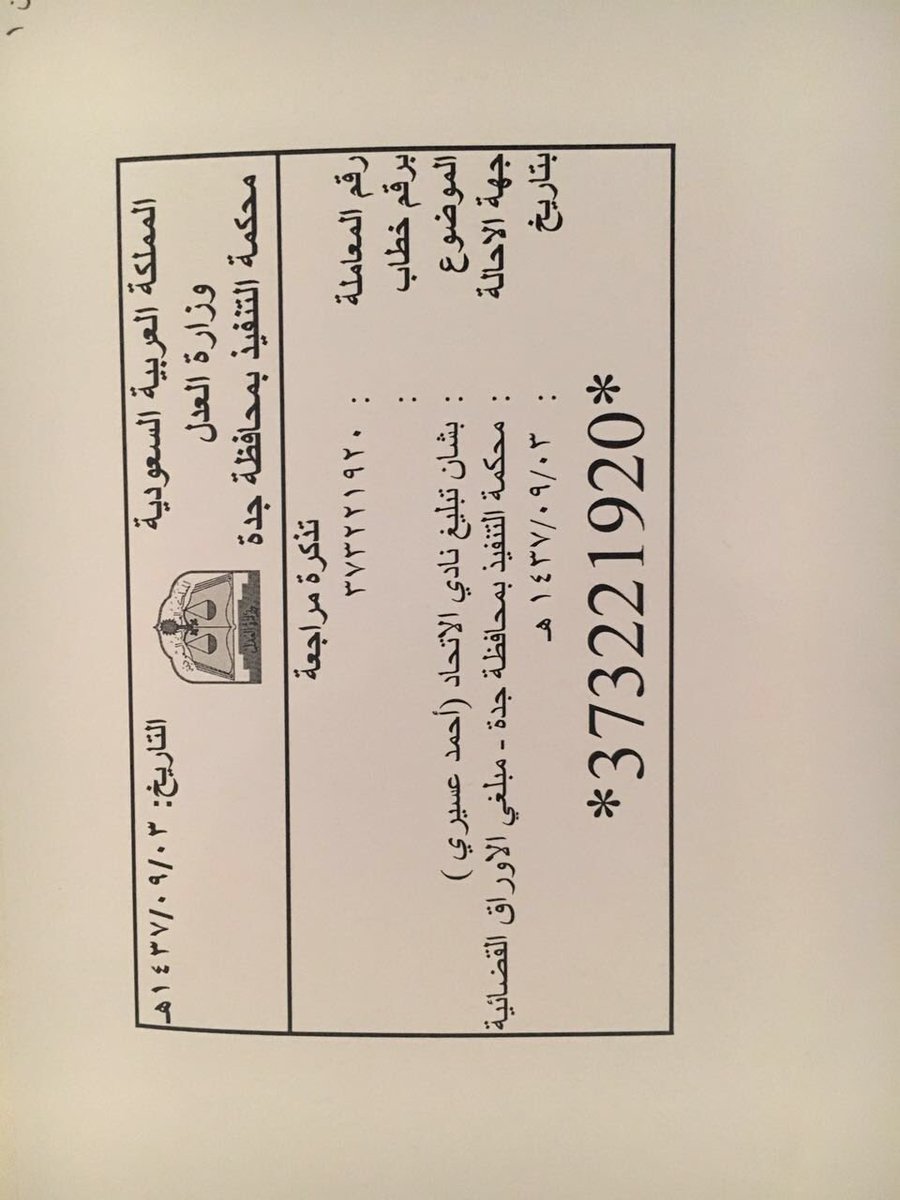 المملكة العربية السعودية
وزارة العدل
محكمة التنفيذ بمحافظة جدة
التاريخ: ١٤٣٧/٠٩/٠٣هـ
تذكرة مراجعة
رقم المعاملة : ٣٧٣٢٢١٩٢٠
برقم خطاب :
الموضوع : بشان تبليغ نادي الاتحاد (أحمد عسيري )
جهة الاحالة : محكمة التنفيذ بمحافظة جدة - مبلغي الاوراق القضائية
بتاريخ : ١٤٣٧/٠٩/٠٣ هـ
*373221920*